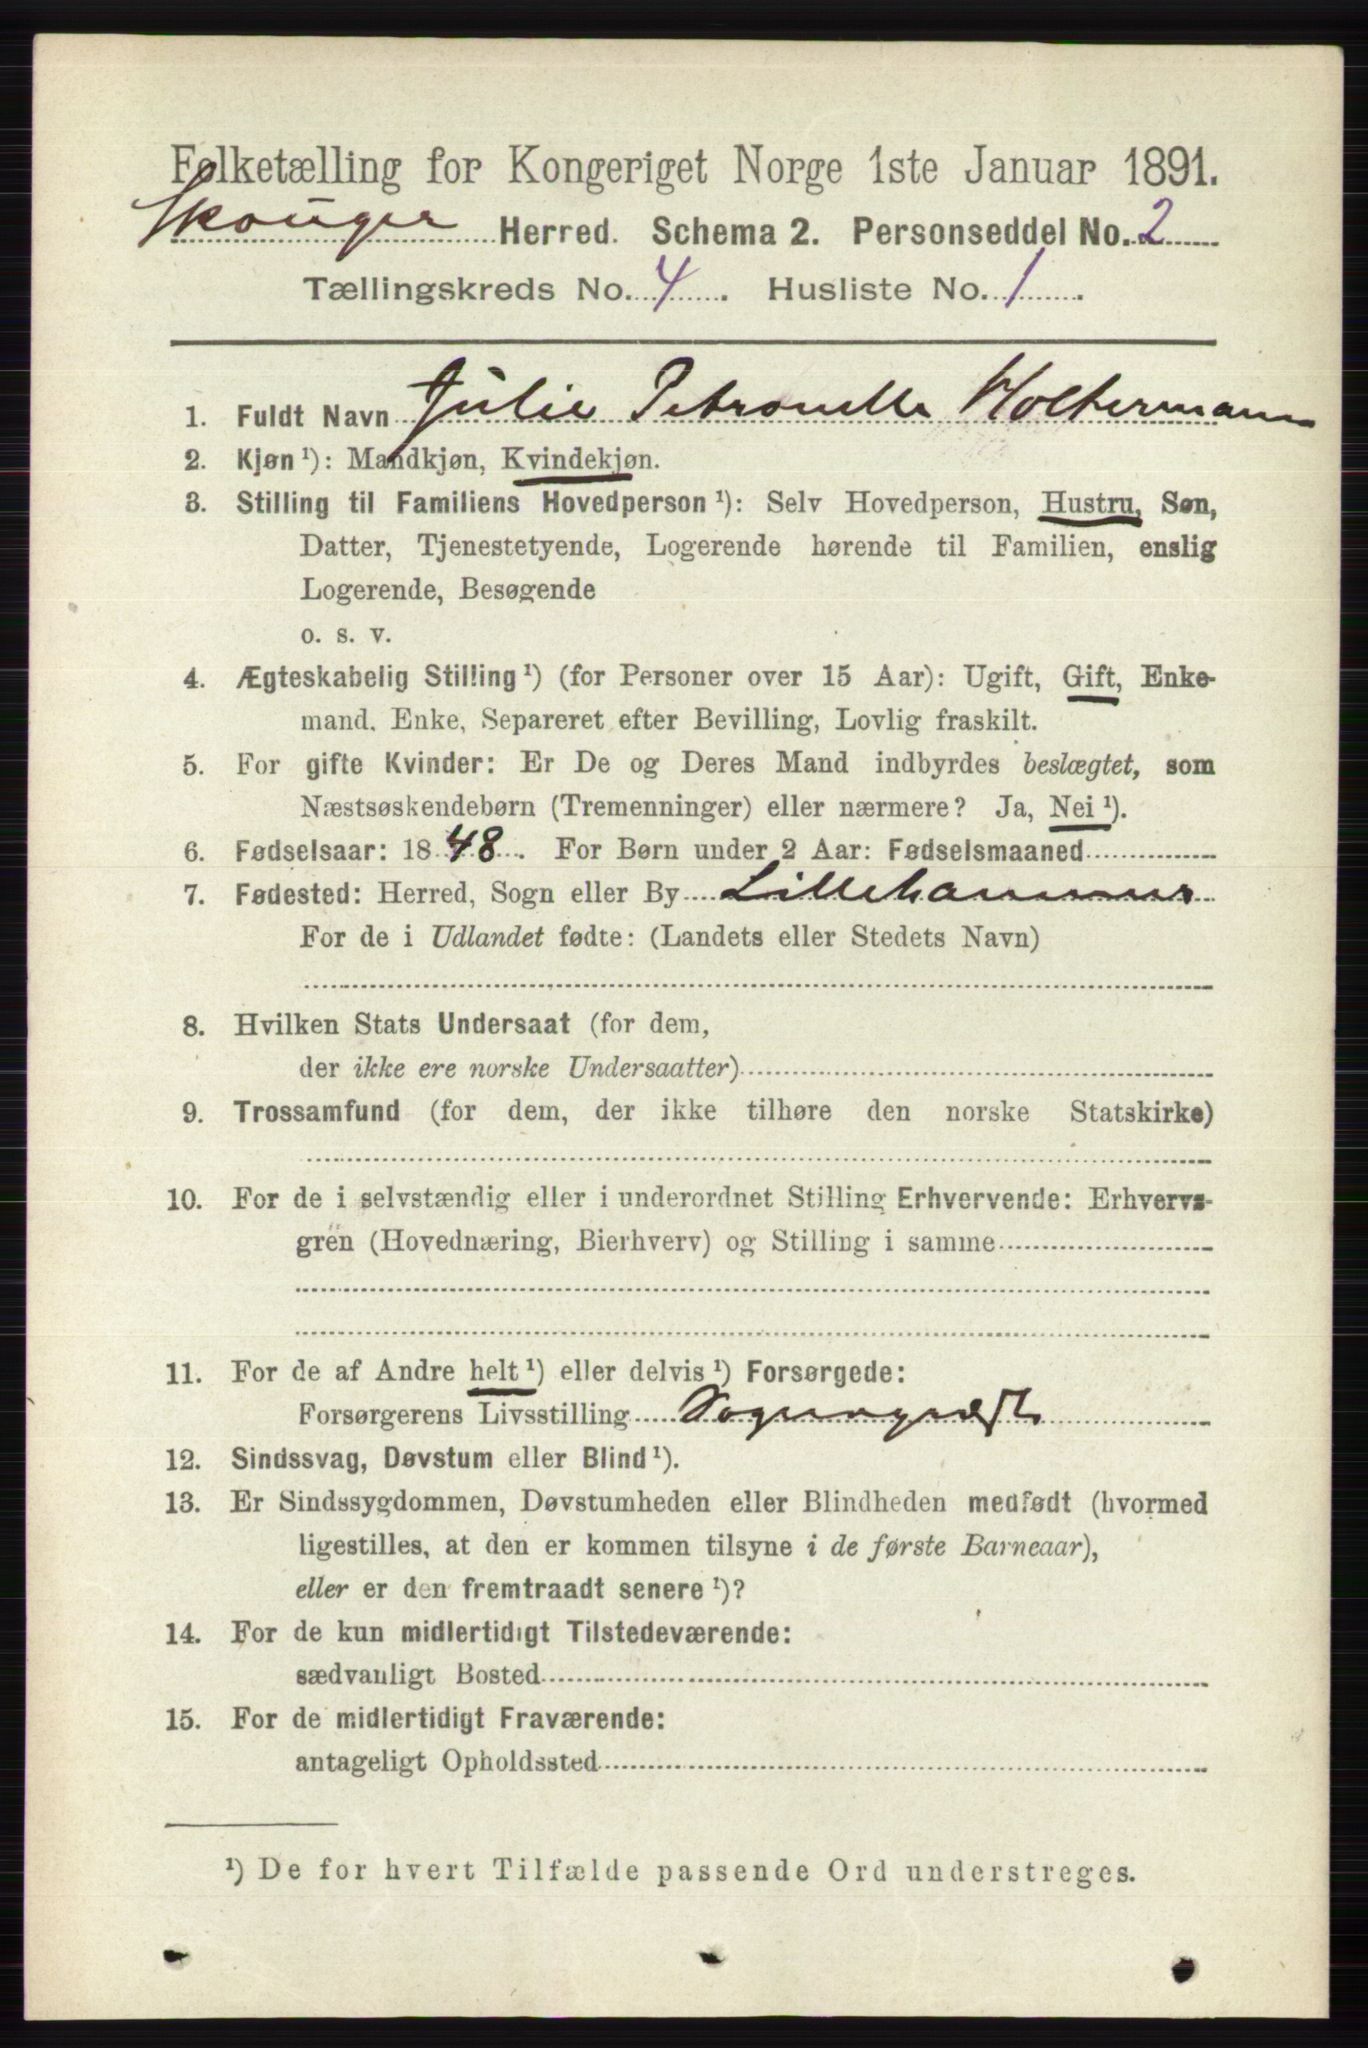 Folketælling for Kongeriget Norge 1ste Januar 1891.
Skouger Herred. Schema 2. Personseddel No. 2
Tællingskreds No. 4. Husliste No. 1.
1. Fuldt Navn Julie Petronelle Holtermann
2. Kjøn ¹): Mandkjøn, Kvindekjøn.
3. Stilling til Familiens Hovedperson ¹): Selv Hovedperson, Hustru, Søn,
Datter, Tjenestetyende, Logerende hørende til Familien, enslig
Logerende, Besøgende
o. s. v.
4. Ægteskabelig Stilling ¹) (for Personer over 15 Aar): Ugift, Gift, Enke-
mand, Enke, Separeret efter Bevilling, Lovlig fraskilt.
5. For gifte Kvinder: Er De og Deres Mand indbyrdes beslægtet, som
Næstsøskendebørn (Tremenninger) eller nærmere? Ja, Nei ¹).
6. Fødselsaar: 1848. For Børn under 2 Aar: Fødselsmaaned
7. Fødested: Herred, Sogn eller By Lillehammer
For de i Udlandet fødte: (Landets eller Stedets Navn)
8. Hvilken Stats Undersaat (for dem,
der ikke ere norske Undersaatter)
9. Trossamfund (for dem, der ikke tilhøre den norske Statskirke)
10. For de i selvstændig eller i underordnet Stilling Erhvervende: Erhvervs-
gren (Hovednæring, Bierhverv) og Stilling i samme
11. For de af Andre helt ¹) eller delvis ¹) Forsørgede:
Forsørgerens Livsstilling Sogneprest
12. Sindssvag, Døvstum eller Blind ¹).
13. Er Sindssygdommen, Døvstumheden eller Blindheden medfødt (hvormed
ligestilles, at den er kommen tilsyne i de første Barneaar),
eller er den fremtraadt senere ¹)?
14. For de kun midlertidigt Tilstedeværende:
sædvanligt Bosted
15. For de midlertidigt Fraværende:
antageligt Opholdssted
¹) De for hvert Tilfælde passende Ord understreges.